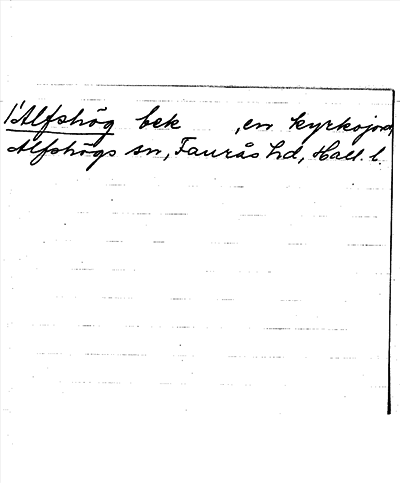 1 Alfshög bek , en kyrkojord,
Alfshögs sn, Faurås hd, Hall. l.